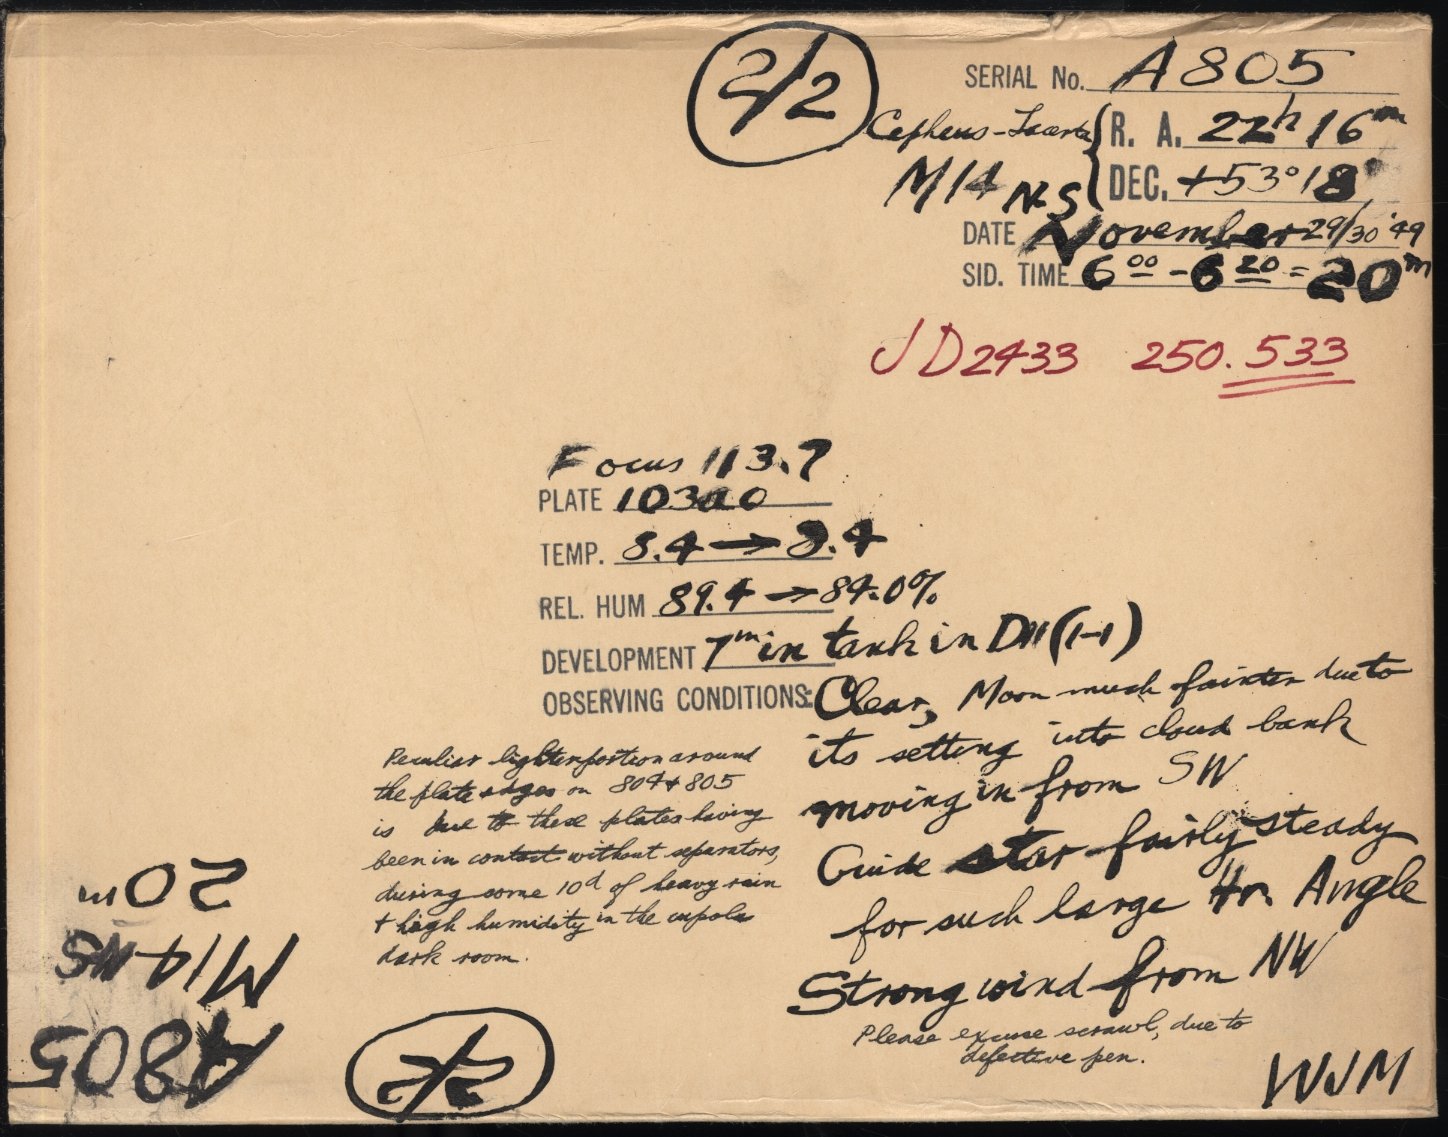 2/2
SERIAL No. A805
Cepheus-Lacerta { R. A. 22h 16m
M14 NS DEC. +53°18'
DATE November 29/30 '49
SID. TIME 6 00 - 6 20 = 20m
JD2433 250.533
Focus 113.7
PLATE 103aO
TEMP. 8.4 → 8.4
REL. HUM 89.4 → 84.0%
DEVELOPMENT 7m in tank in D11 (1-1)
OBSERVING CONDITIONS: Clear, Moon much fainter due to
its setting into cloud bank
moving in from SW
Guide star fairly steady
for such large Hr. Angle
Strong wind from NW
Please excuse scrawl, due to
defective pen.
WJM
Peculiar lighter portion around
the plate edges on 804 + 805
is due to these plates having
been in contact without separators,
during some 10d of heavy rain
+ high humidity in the cupola
dark room.
2/2
A805
M14 NS
20m